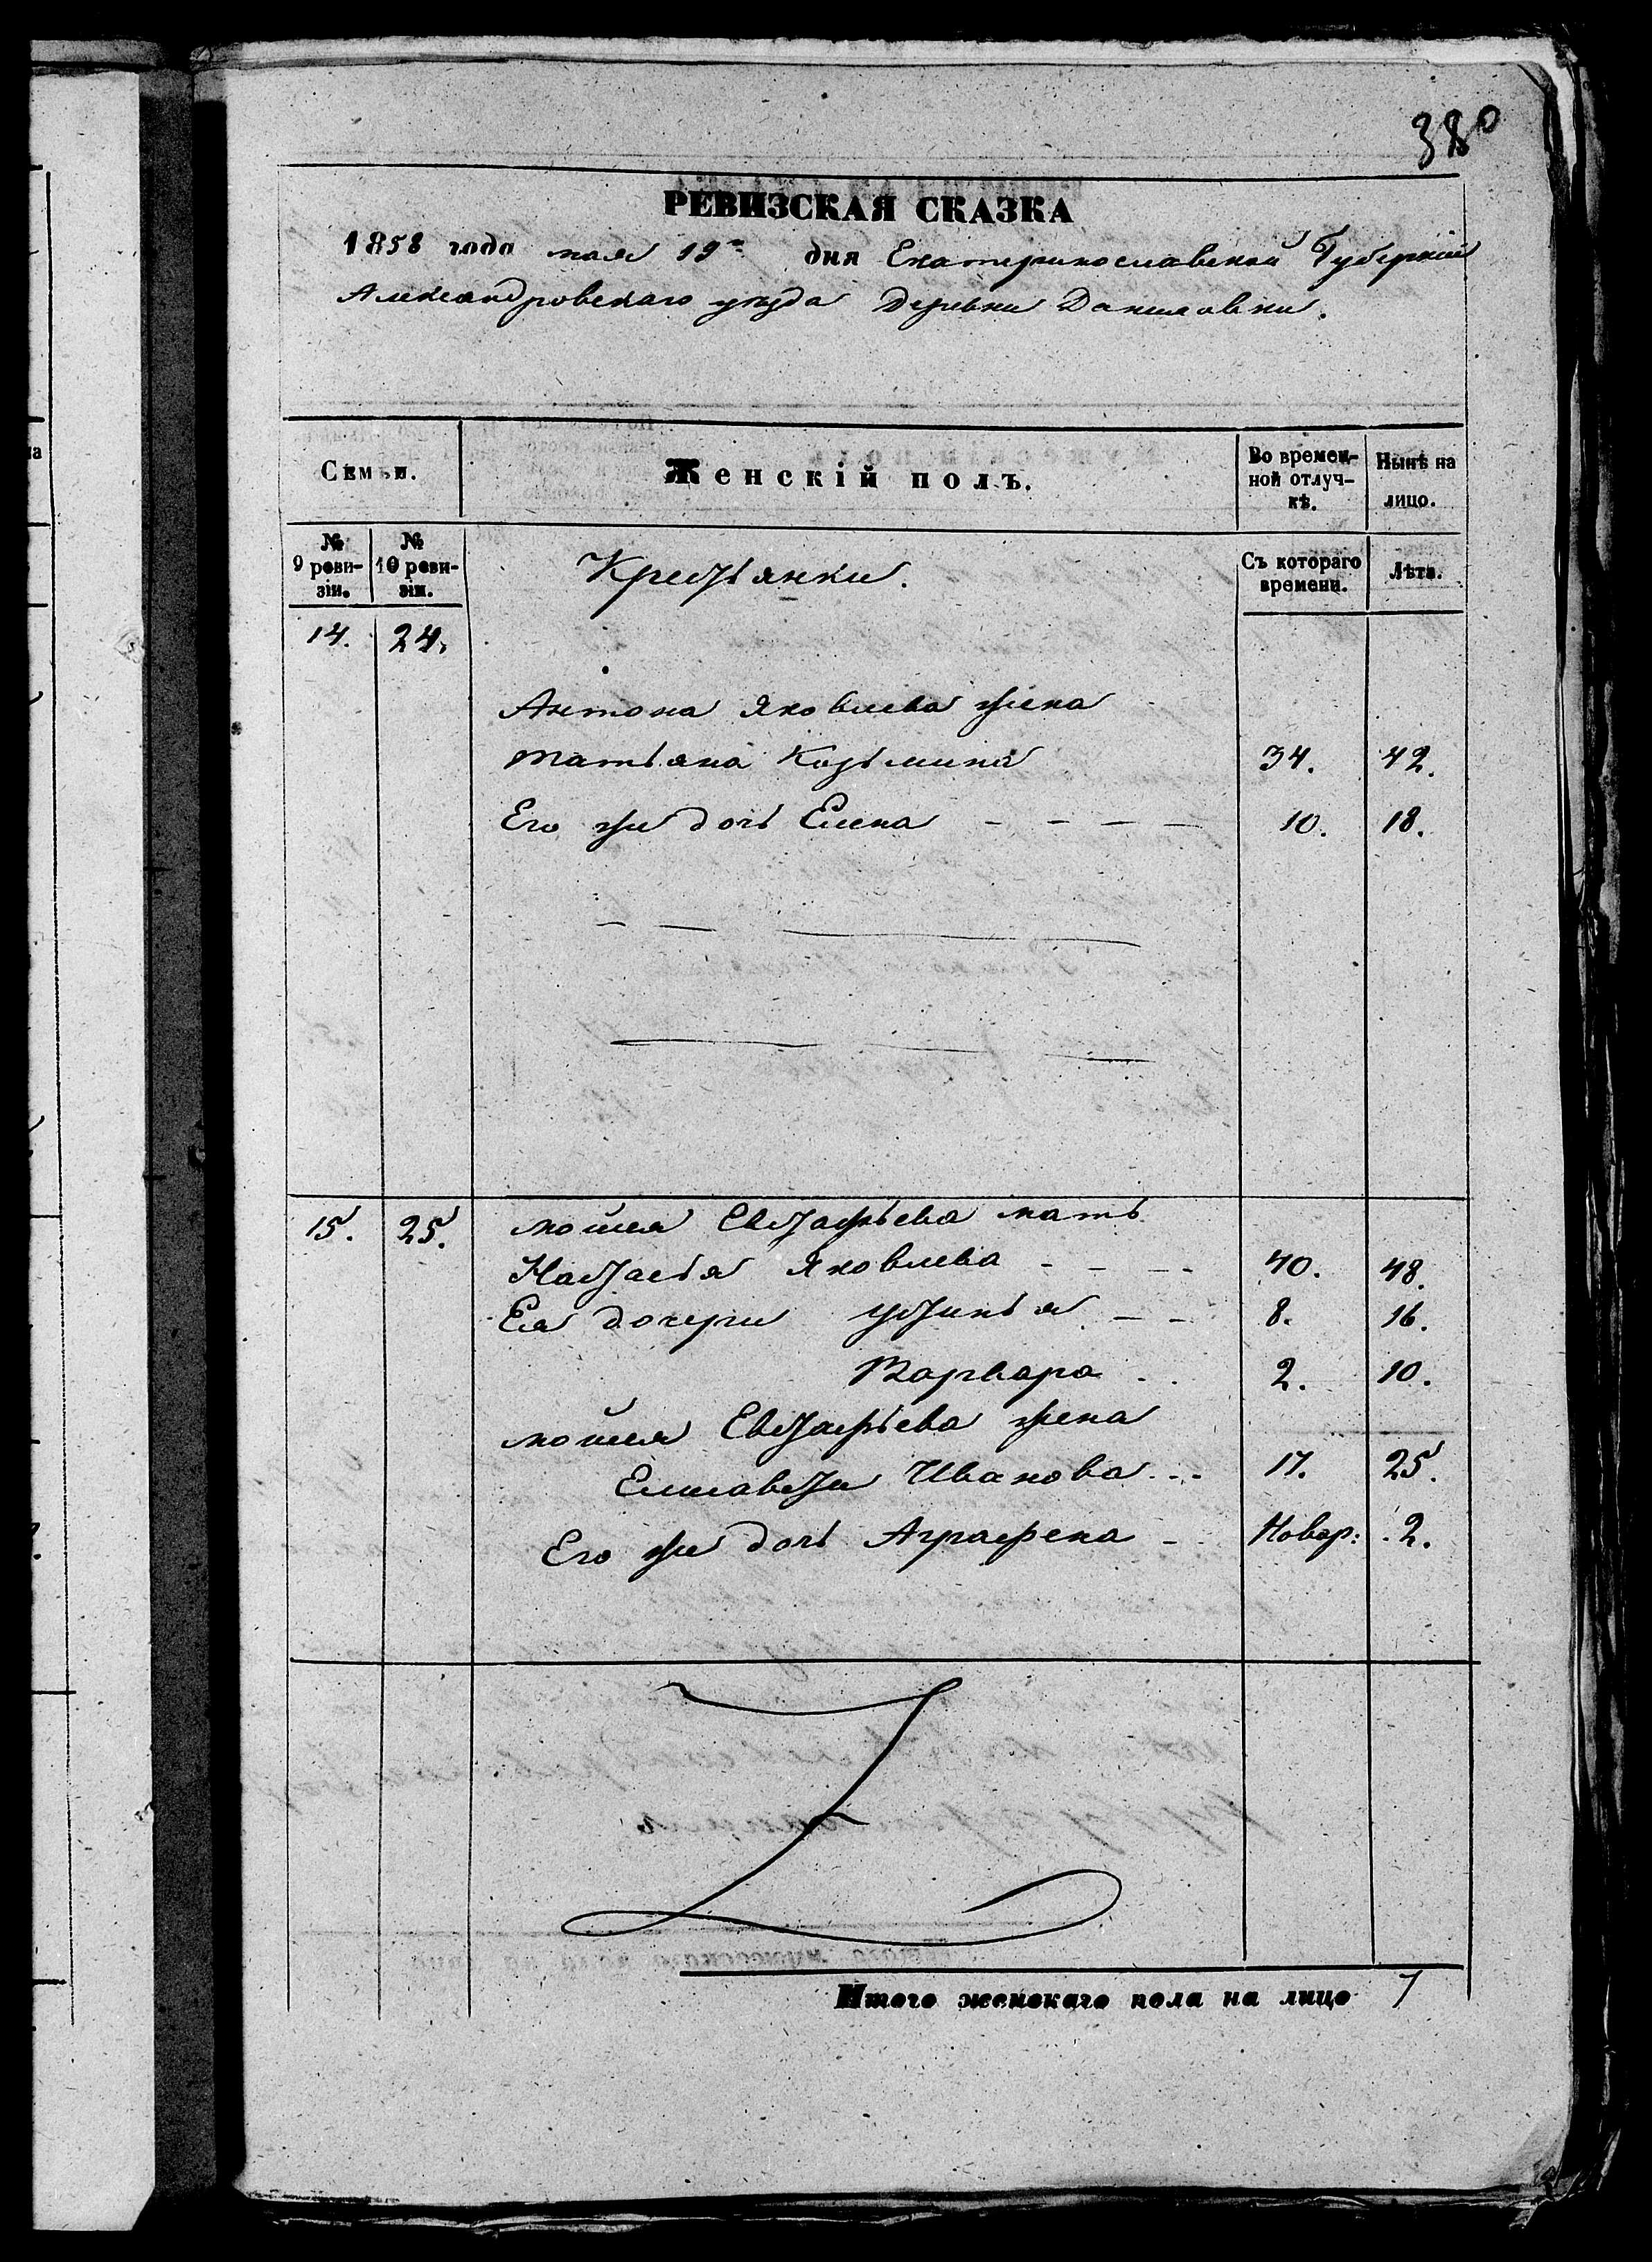 380
РЕВИЗСКАЯ СКАЗКА
1858 года мая 19го дня Екатеринославской Губерніи
Александровскаго уезда деревни Даниловки.
Семьи.
Женскій полъ.
Во времен-
ной отлуч-
кѣ.
Нынѣ на
лицо.
№
9 реви-
зіи.
№
10 реви-
зіи.
Крестьянки.
Съ котораго
времени.
Лѣта.
14. 24.
Антона Яковлева жена
Татьяна Козьмина 34. 42.
Его же дочь Елена - - - - 10. 18.
15. 25. мойсея Евстафьева мать
Настасья Яковлева - - - - 40. 48.
Ея дочери Устинья - - 8. 16.
Варвара - - 2. 10.
мойсея Евстафьева жена
Елисавета Иванова - - 17. 25.
Его же дочь Аграфена - Новор: 2.
Итого женскаго пола на лицо 7